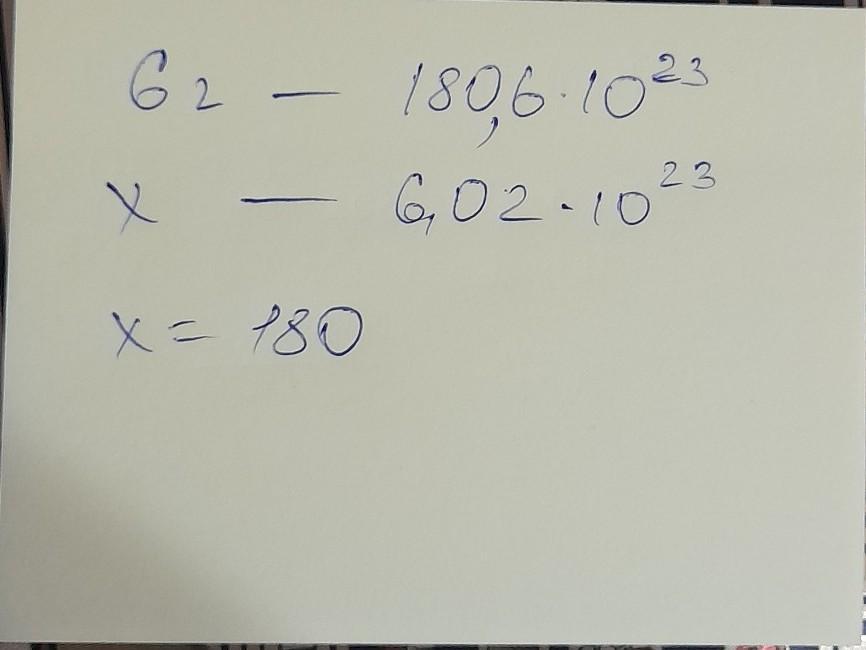 6г — 180,6·10²³
x — 6,02·10²³
x = 180